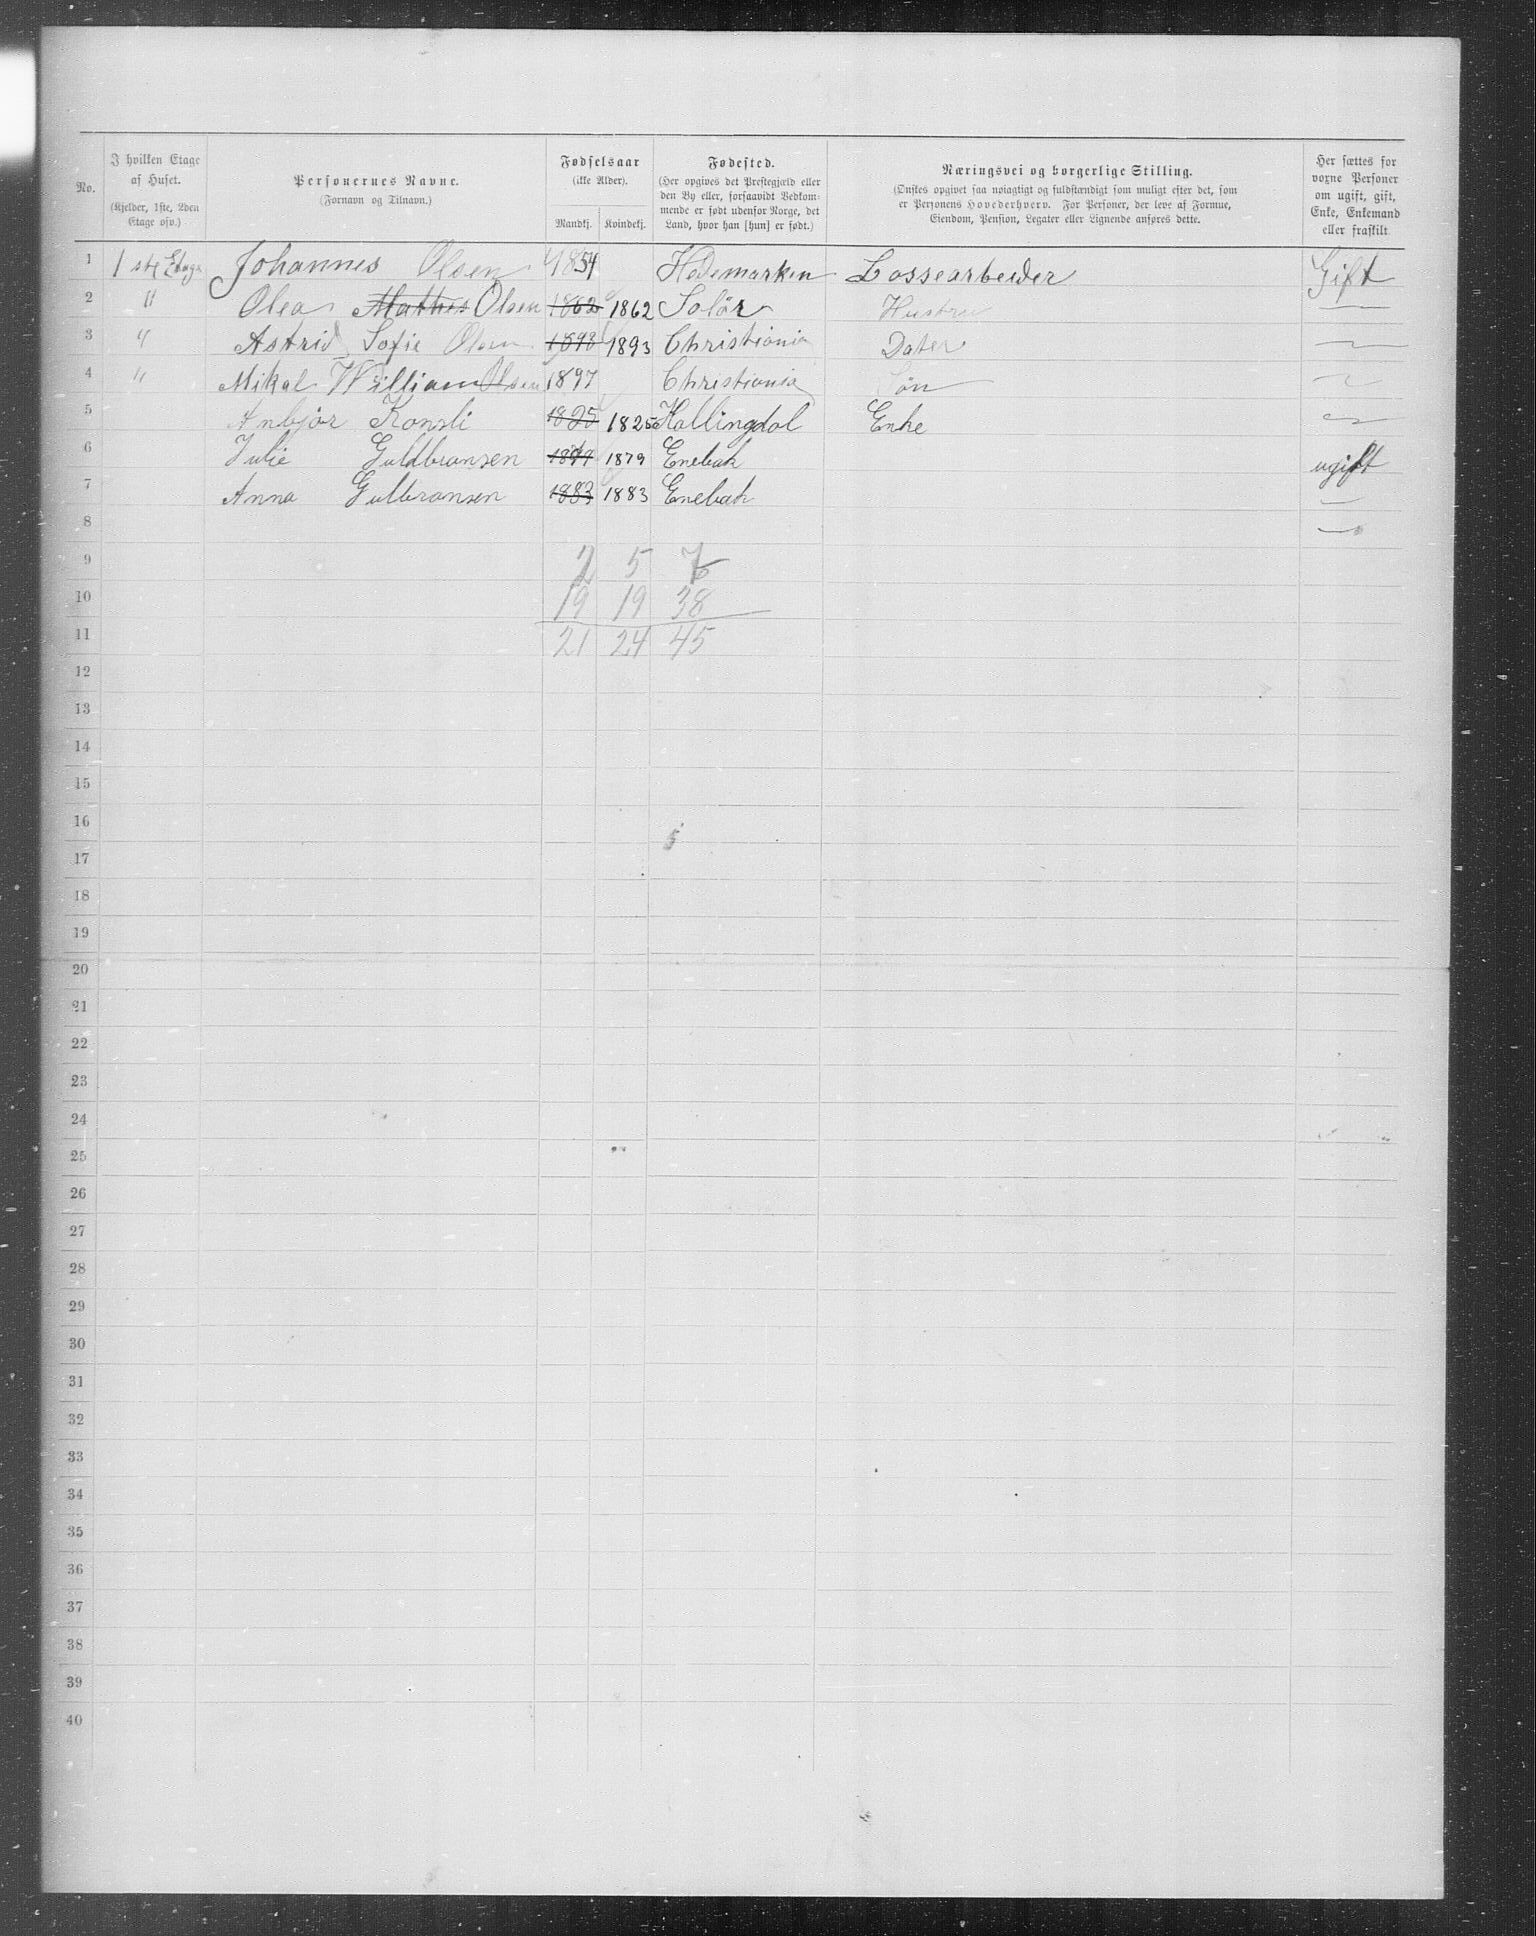 No.
I hvilken Etage
af Huset.
(Kjelder, 1ste, 2den
Etage osv.)
Personernes Navne.
(Fornavn og Tilnavn.)
Fødselsaar
(ikke Alder).
Mandkj. Kvindekj.
Fødested.
(Her opgives det Prestegjæld eller
den By eller, forsaavidt Vedkom-
mende er født udenfor Norge, det
Land, hvor han [hun] er født.)
Næringsvei og borgerlige Stilling.
(Ønskes opgivet saa nøiagtigt og fuldstændigt som muligt efter det, som
er Personens Hovederhverv. For Personer, der leve af Formue,
Eiendom, Pension, Legater eller Lignende anføres dette.
Her sættes for
voxne Personer
om ugift, gift,
Enke, Enkemand
eller fraskilt
1 1ste Etage Johannes Olsen 1854 Hedemarken Lossearbeider Gift
2 " Olea Mathis Olsen 1862 1862 Solör Hustru —
3 " Astrid Sofie Olsen 1893 1893 Christiania Dater —
4 " Mikal William Olsen 1897 Christiania Sön —
5 Anbjör Konsli 1825 1825 Hallingdal Enke —
6 Julie Guldbransen 1879 Enebak ugift
7 Anna Gulbransen 1883 1883 Enebak —
8 —
9 2 5 7
10 19 19 38
11 21 24 45
12
13
14
15
16
17
18
19
20
21
22
23
24
25
26
27
28
29
30
31
32
33
34
35
36
37
38
39
40